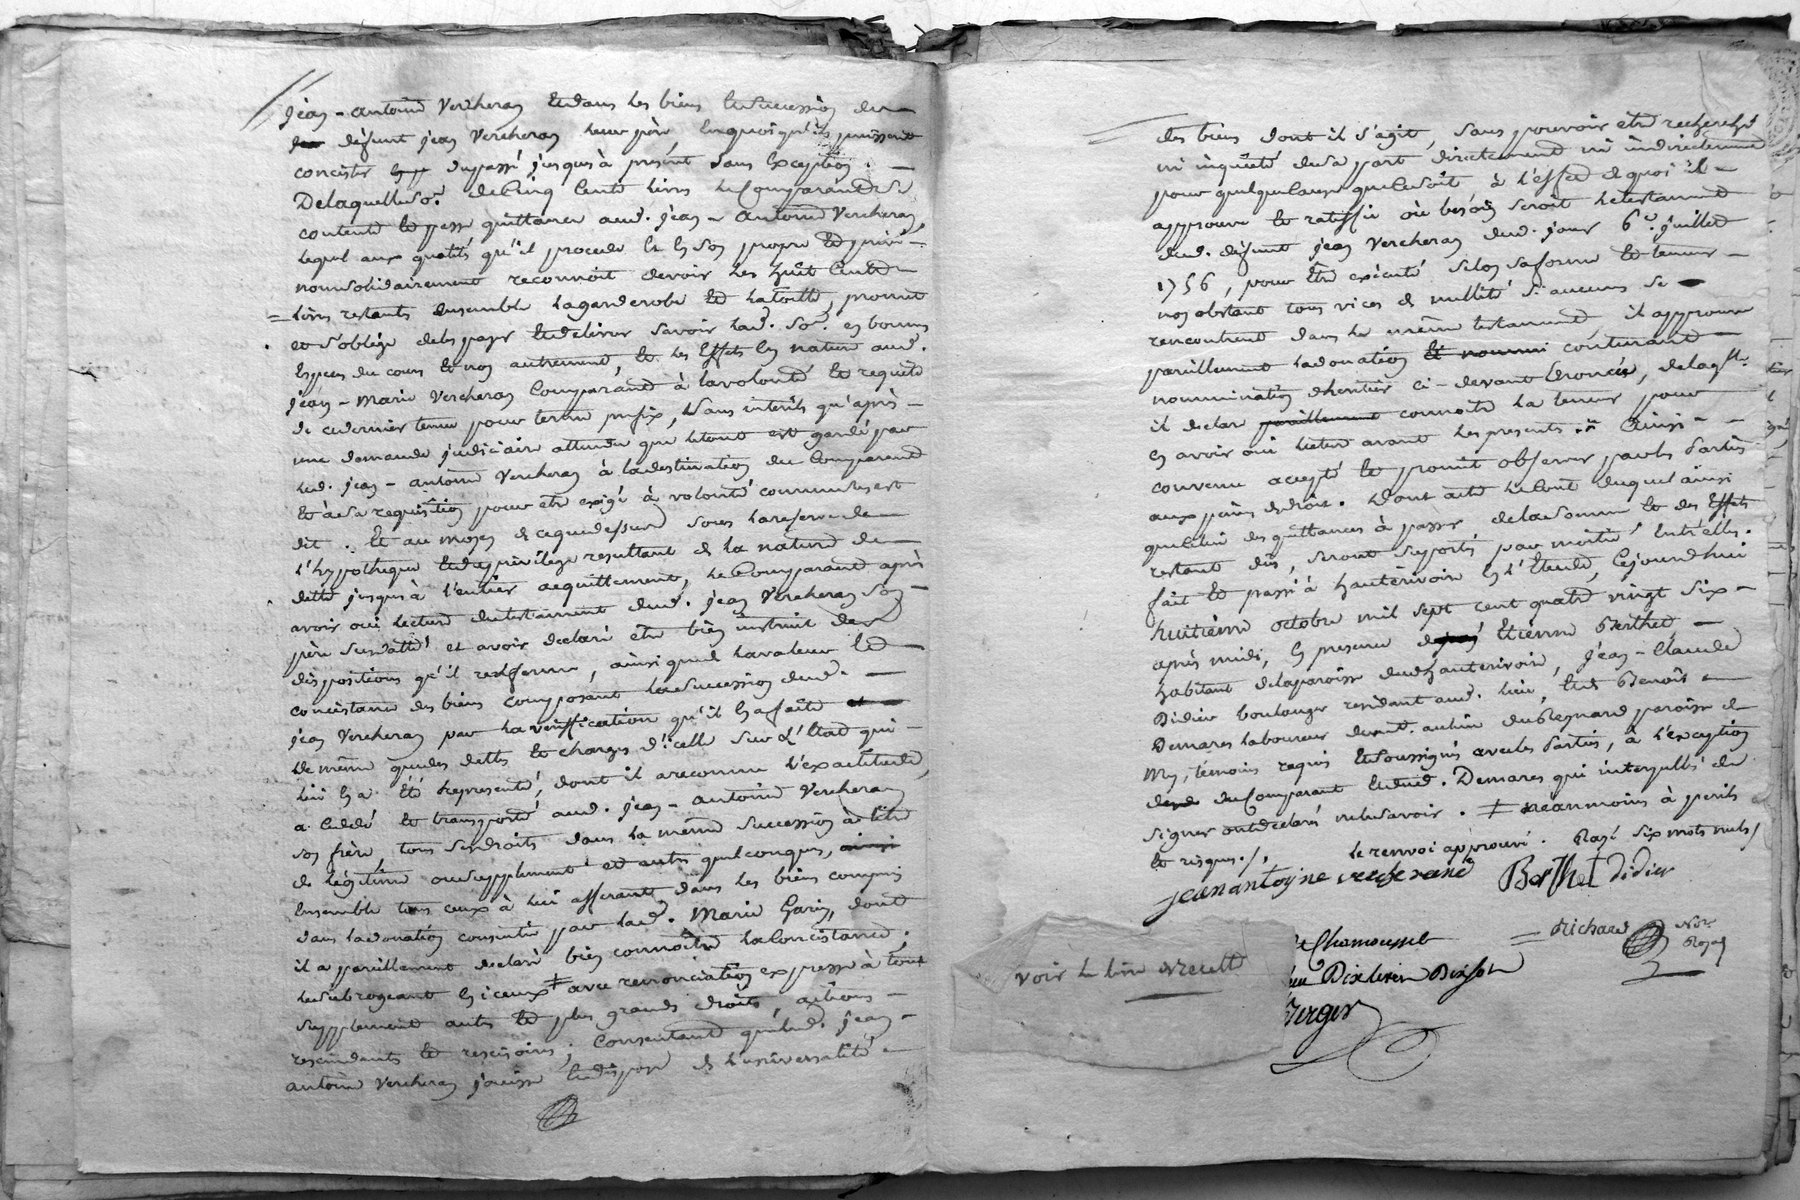 jean - antoine Vercheran Et dans les biens Et succession de
défunt jean Vercheran leur père En quoi qu'ils puissent
concister du passé jusques à présent sans Exception. -
De laquelle so.e de Cinq Cents livres le Comparant se
contente Et passe quittance aud. jean - antoine Vercheran,
lequel aux qualités qu'il procede Et En son propre Et privé -
nom solidairement reconnoit devoir les huit Cents -
livres restants ensemble la garderobe Et la toille, promet
et s'oblige de les payer Et delivrer savoir lad. so.e en bonnes
Espèces du cours Et non autrement, Et les Effets En nature aud.
jean - Marie Vercheran Comparant à la volonté Et requête
de ce dernier tenue pour terme prefix, sans interets qu'après -
une demande judiciaire attendu que le tout est gardé par
led. jean - antoine Vercheran à la destination du Comparant
Et à sa requisition pour etre exigé à volonté comme dessus est
dit. Et au moyen de ce que dessus sous la reserve de
l'hypotheque Et du privilege resultant de la nature de
dette jusqu'à l'entier acquittement, le Comparant après
avoir oui lecture du testament dud. jean Vercheran son -
père susdatté et avoir declaré etre bien instruit des
dispositions qu'il renferme, ainsi que de la valeur Et
concistance des biens composant la succession dud. -
jean Vercheran par la vérification qu'il En a faite
de même que des dettes Et charges d'icelle sur l'Etat qui -
lui En a Eté representé, dont il a reconnu l'exactitude,
a Cedé Et transporté aud. jean - antoine Vercheran
son frère, tous ses droits dans la même succession à titre
de légitime ou supplement et autres quelconques, ainsi
Ensemble tous ceux à lui afferants dans les biens compris
dans la donation consentie par lad. Marie Garin, dont
il a pareillement declaré bien connoitre la Concistance;
le subrogeant En iceux ‡ avec renonciation expresse à tout
supplement autre Et plus grands droits, actions -
rescindants Et rescisoires; Consentant que led. jean -
antoine Vercheran jouisse Et dispose de l'universalité -
des biens dont il s'agit, sans pouvoir etre recherché
ni inquieté de sa part directement ni indirectement
pour quelque Cause que Ce soit, à l'effet de quoi il -
approuve Et ratiffie où besoin seroit le testament
dud. défunt jean Vercheran dud. jour 6.e juillet
1756, pour Etre exécuté selon sa forme Et teneur -
non obstant tous vices de nullité si aucuns se
rencontrent dans le même testament, il approuve
pareillement la donation Et nommi contenant
nomination d'heritier ci - devant Enoncée, de laq.lle
il declare pareillement connoitre la teneur pour
En avoir oui lecture avant les presentes. Ainsi -
convenu accepté Et promit observer par les Parties
aux peines de droit. Dont acte le Cout duquel ainsi
que Celui des quittances à passer de la somme Et des Effets
restant dûs, seront suportés par moitié Entr'elles.
fait Et passé à hauterivoire En l'Etude, Cejourd'hui
huitième octobre mil sept cent quatre vingt six -
après midi, En presence de Etienne Berthet,
habitant de la paroisse dud. hauterivoire, jean - Claude
Didier boulanger residant aud. lieu, Et de Benoit
Demares laboureur demt. au lieu du Regnard paroisse de
My, témoins requis Et soussignés avec les Parties, à l'exception
du Comparant Et dud. Demares qui interpellés de
signer ont declaré ne le savoir. ‡ néanmoins à perils
Et risques./. le renvoi approuvé. Rayé six mots nuls/
jean antoyne vercherand Berthet Didier
Richard Not.re Royal
voir le livre de recette
Verger